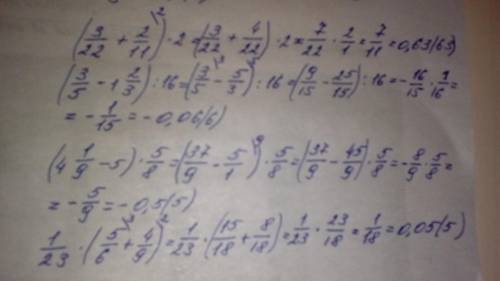 (3/22 + 2/11\2) · 2 = (3/22 + 4/22) · 2 = 7/22 · 2/1 = 7/11 = 0,63(63)
(3/5 - 1 2/3) : 16 = (3/5\3 - 5/3\5) : 16 = (9/15 - 25/15) : 16 = - 16/15 · 1/16 =
= - 1/15 = -0,06(6)
(4 1/9 - 5) · 5/8 = (37/9 - 5/1\9) · 5/8 = (37/9 - 45/9) · 5/8 = - 8/9 · 5/8 =
= - 5/9 = -0,5(5)
1/23 · (5/6\3 + 4/9\2) = 1/23 · (15/18 + 8/18) = 1/23 · 23/18 = 1/18 = 0,05(5)